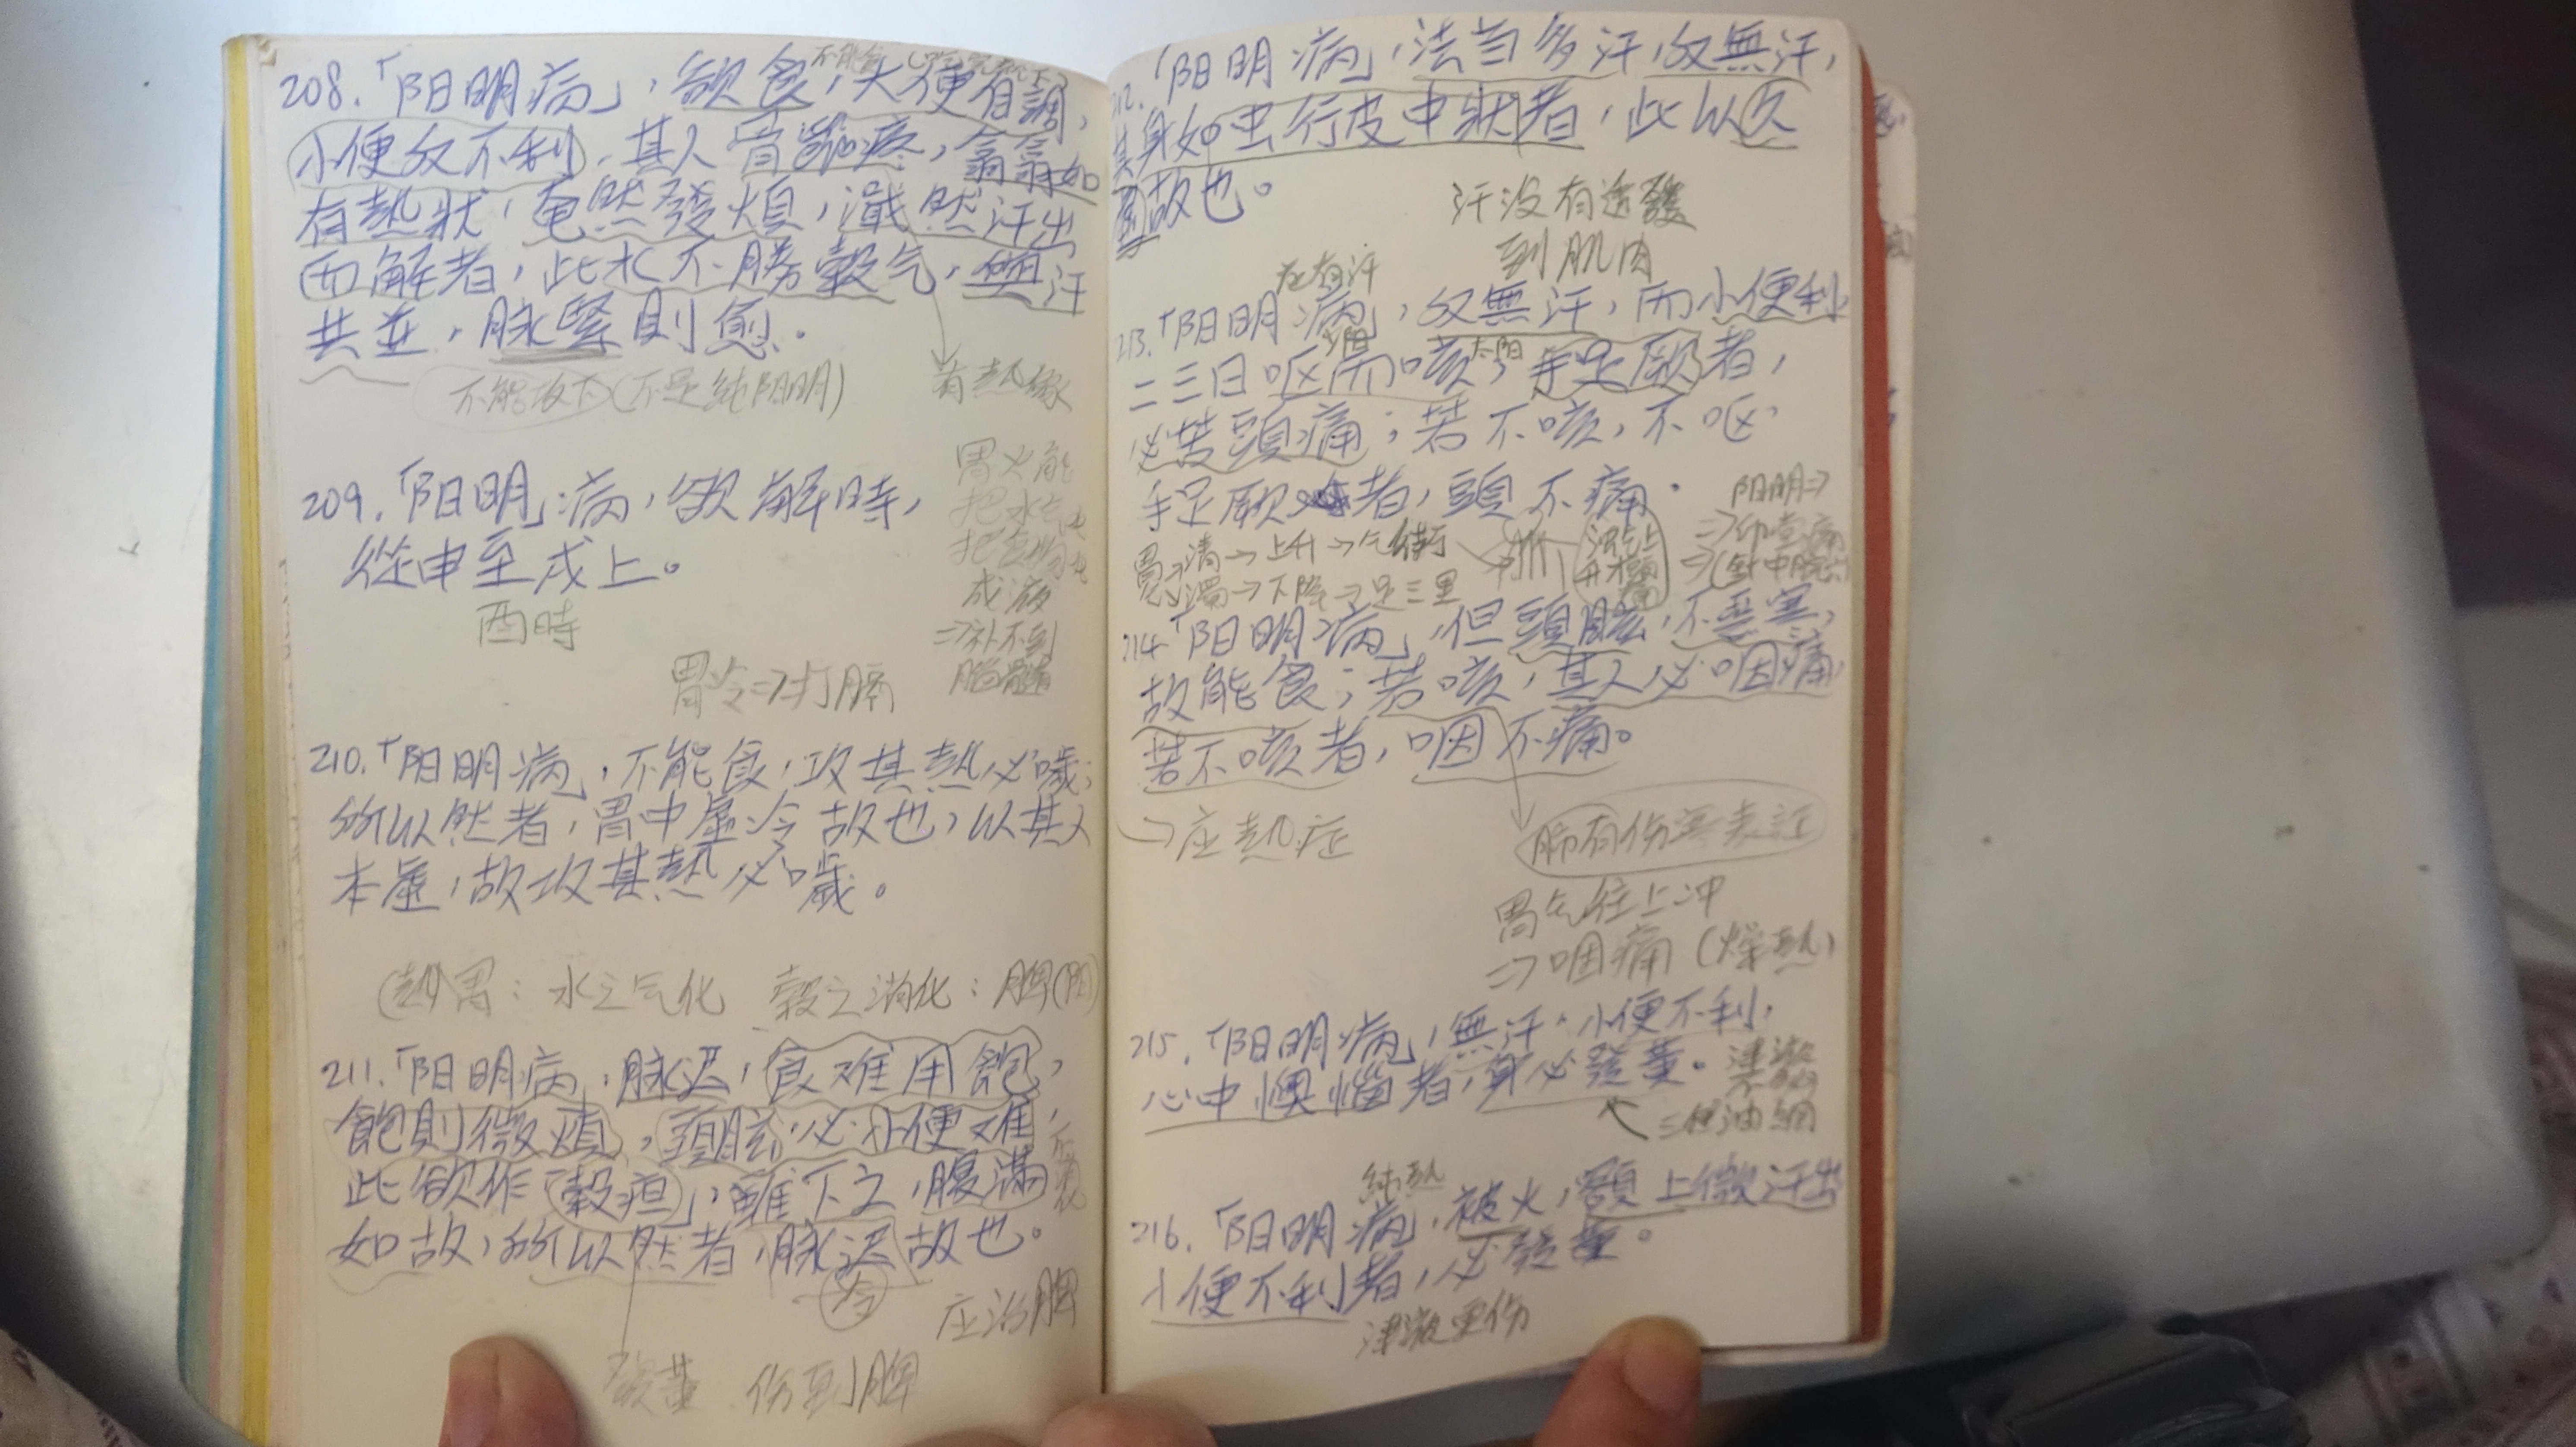 208.「阳明病」,欲食,大便自調,
小便反不利,其人骨節疼,翕翕如
有熱狀,奄然發煩,濈然汗出
而解者,此水不勝穀气,與汗
共並,脉緊則愈。
不能攻下(不是純阳明)
有熱緣
209.「阳明」病,欲解時,
從申至戌上。
酉時
胃火能
把水气
把食物
成液
⇒补不到
脑髓
胃冷⇒打膈
210.「阳明病」,不能食,攻其熱必噦;
所以然者,胃中虛冷故也,以其人
本虛,故攻其熱必噦。
(熱)胃:水之气化 穀之消化:脾(阴)
211.「阳明病」,脉迟,食难用飽,
飽則微煩,頭眩,必小便难,
此欲作「穀疸」,雖下之,腹滿
如故,所以然者,脉迟故也。
冷
应治脾
發黃 伤到脾
212.「阳明病」,法当多汗,反無汗,
其身如虫行皮中狀者,此以久
虛故也。
汗没有透發
到肌肉
应有汗
213.「阳明病」,反無汗,而小便利,
二三日呕而咳,手足厥者,
少阳
太阳
必苦頭痛;若不咳,不呕,
手足厥者,頭不痛。
阳明⇒
⇒印堂痛
⇒(針中脘)
胃→清→上升→气街
濁→下降→足三里
濁气上
214「阳明病」,但頭眩,不恶寒,
故能食;若咳,其人必咽痛,
若不咳者,咽不痛。
→应熱症
肺有伤寒表証
胃气往上冲
⇒咽痛(燥熱)
215.「阳明病」,無汗,小便不利,
心中懊惱者,身必發黃。
津液
三焦油網
純熱
216.「阳明病」,被火,額上微汗出
小便不利者,必發黃。
津液更伤